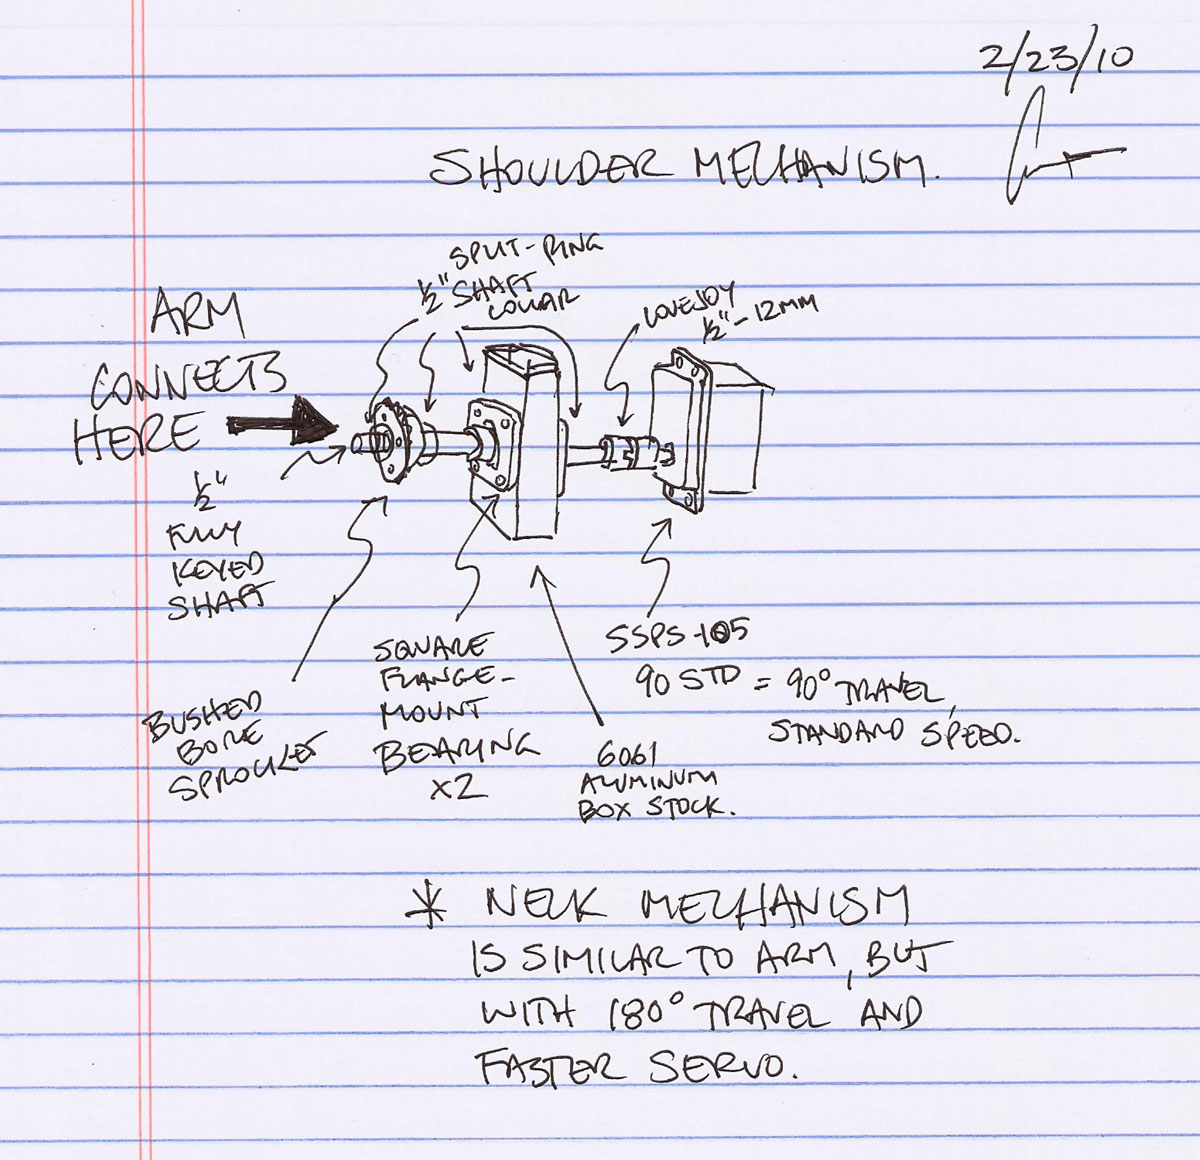 2/23/10
SHOULDER MECHANISM.
SPLIT-RING
1/2" SHAFT
COLLAR
LOVEJOY
1/2" - 12MM
ARM
CONNECTS
HERE
1/2"
FULLY
KEYED
SHAFT
BUSHED
BORE
SPROCKET
SQUARE
FLANGE-
MOUNT
BEARING
X2
6061
ALUMINUM
BOX STOCK.
SSPS-105
90 STD = 90° TRAVEL,
STANDARD SPEED.
* NECK MECHANISM
IS SIMILAR TO ARM, BUT
WITH 180° TRAVEL AND
FASTER SERVO.